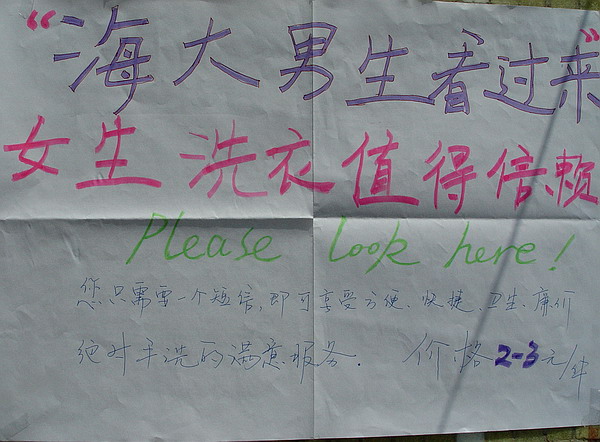 “海大男生看过来”
女生洗衣值得信赖
Please look here!
您只需要一个短信,即可享受方便、快捷、卫生、廉价
绝对手洗的满意服务. 价格2-3元/件